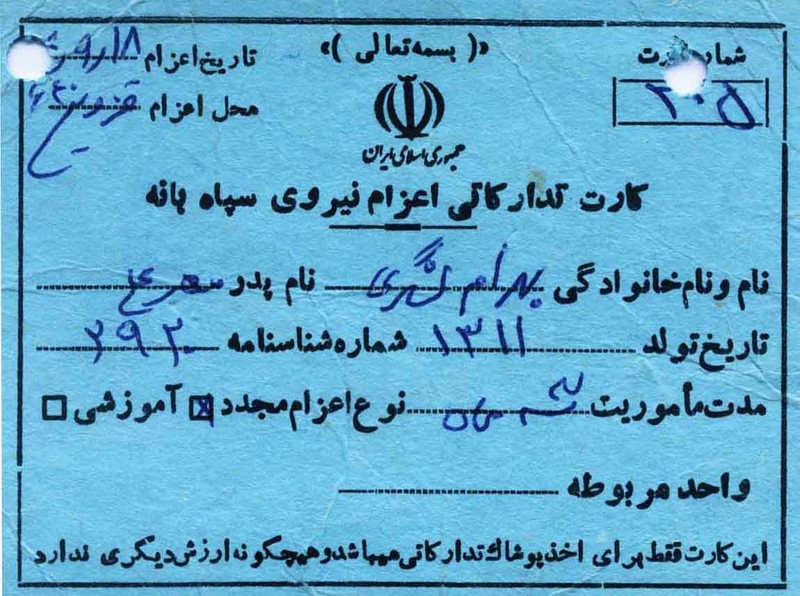 «( بسمه تعالی )»
شماره کارت
۲۰۵
تاریخ اعزام ۱۸
محل اعزام قزوین
جمهوری اسلامی ایران
کارت تدارکاتی اعزام نیروی سپاه بانه
نام و نام خانوادگی بهرام لشگری نام پدر
تاریخ تولد ۱۳۱۱ شماره شناسنامه ۲۹۲۰
مدت مأموریت نوع اعزام مجدد آموزشی
واحد مربوطه
این کارت فقط برای اخذ پوشاك تدارکاتی میباشد و هیچگونه ارزش دیگری ندارد